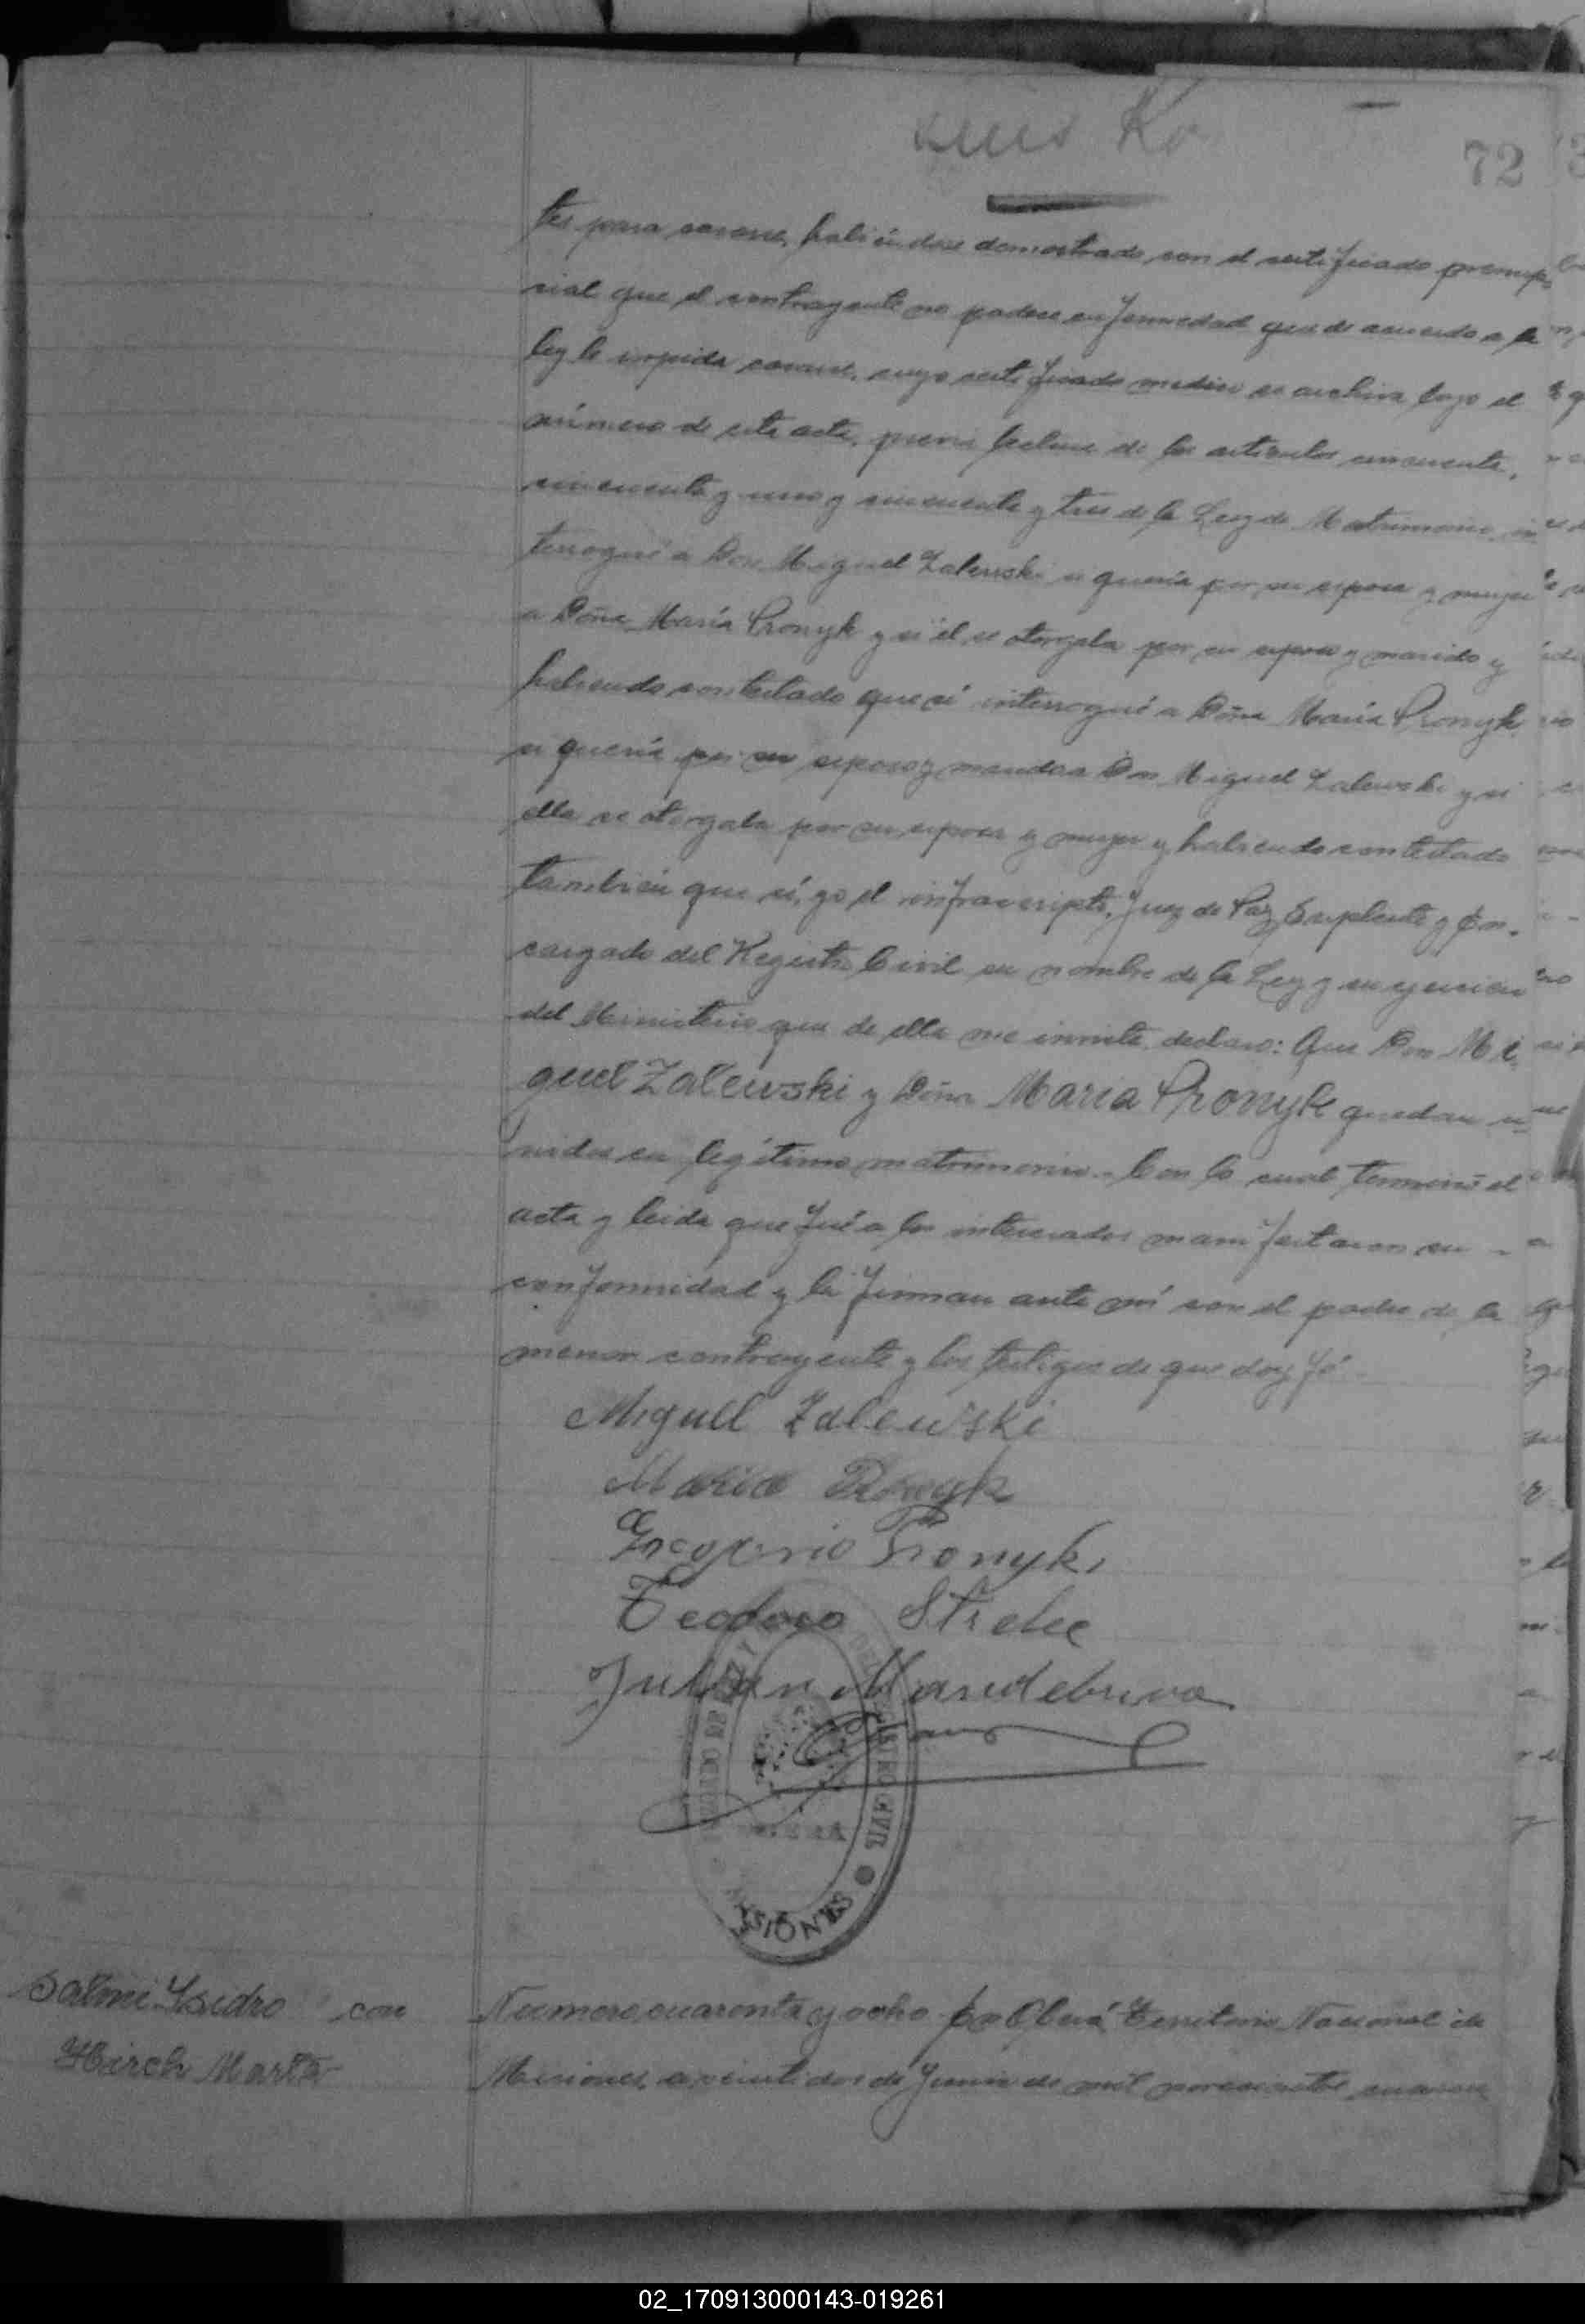 72
tes para casarse, habiéndose demostrado con el certificado prenup-
cial que el contrayente no padece enfermedad que de acuerdo a la
ley le impida casarse, cuyo certificado medico se archiva bajo el
número de esta acta, previa lectura de los articulos cincuenta,
cincuenta y uno y cincuenta y tres de la Ley de Matrimonio, in
terrogué a Don Miguel Zalewski si quería por su esposa y mujer
a Doña María Pronyk y si él se otorgaba por su esposo y marido y
habiendo contestado que sí interrogué a Doña María Pronyk
si quería por su esposo y marido a Don Miguel Zalewski y si
ella se otorgaba por su esposa y mujer y habiendo contestado
también que sí, yo el infrascripto, Juez de Paz Suplente y En-
cargado del Registro Civil en nombre de la Ley y en ejercicio
del Ministerio que de ella me inviste, declaro: Que Don Mi
guel Zalewski y Doña Maria Pronyk quedan u
nidos en legítimo matrimonio.- Con lo cual terminó el
acta y leida que fué a los interesados manifestaron su -
conformidad y la firman ante mí con el padre de la
menor contrayente y los testigos de que doy fé.-
Miguel Zalewski
Maria Pronyk
Gregorio Pronyk
Teodoro Strelec
Julian
REGISTRO CIVIL
MISIONES
Salmi Isidro con
Hirch Marta
Numero cuarenta y ocho En Oberá, Territorio Nacional de
Misiones, a veintidos de Junio de mil novecientos cuaren
02_170913000143-019261